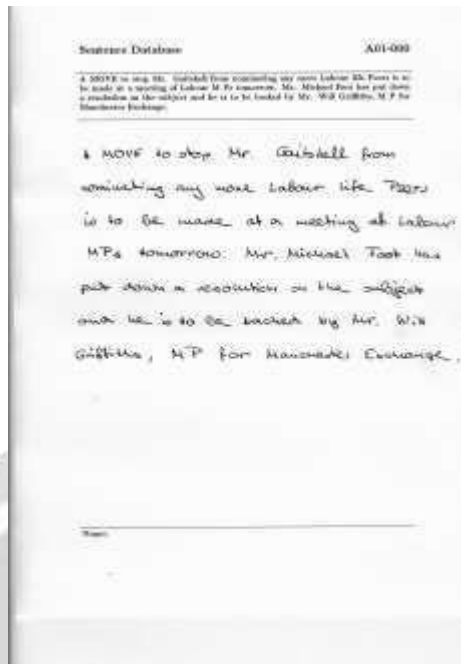 Sentence Database A01-000
A MOVE to stop Mr. Gaitskell from nominating any more Labour life Peers is to
be made at a meeting of Labour M Ps tomorrow. Mr. Michael Foot has put down
a resolution on the subject and he is to be backed by Mr. Will Griffiths, M P for
Manchester Exchange.
A MOVE to stop Mr. Gaitskell from
nominating any more Labour life Peers
is to be made at a meeting of Labour
MPs tomorrow. Mr. Michael Foot has
put down a resolution on the subject
and he is to be backed by Mr. Will
Griffiths, MP for Manchester Exchange.
Name: